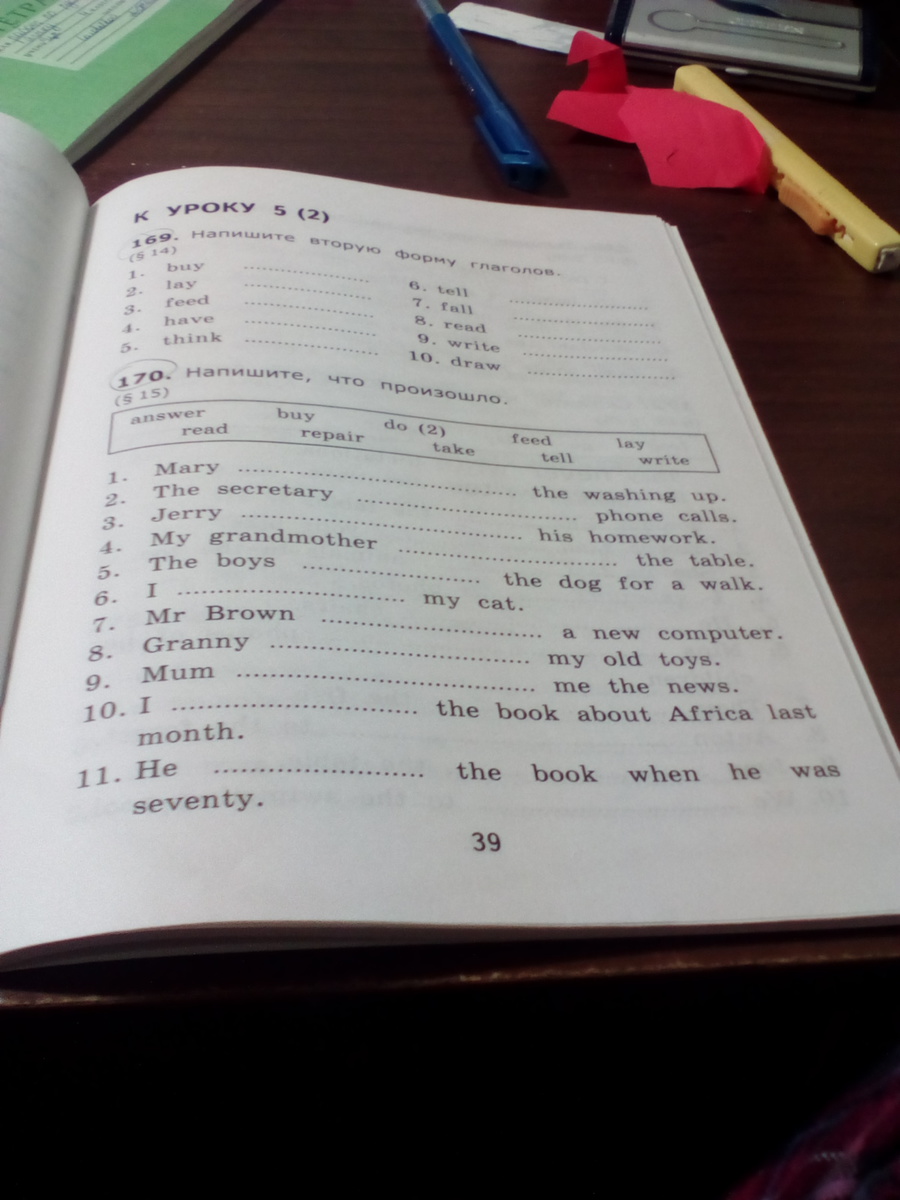 К УРОКУ 5 (2)
169. Напишите вторую форму глаголов.
(§ 14)
1. buy ........................
2. lay ........................
3. feed ........................
4. have ........................
5. think ........................
6. tell ........................
7. fall ........................
8. read ........................
9. write ........................
10. draw ........................
170. Напишите, что произошло.
(§ 15)
answer buy do (2) feed lay
read repair take tell write
1. Mary ........................ the washing up.
2. The secretary ........................ phone calls.
3. Jerry ........................ his homework.
4. My grandmother ........................ the table.
5. The boys ........................ the dog for a walk.
6. I ........................ my cat.
7. Mr Brown ........................ a new computer.
8. Granny ........................ my old toys.
9. Mum ........................ me the news.
10. I ........................ the book about Africa last
month.
11. He ........................ the book when he was
seventy.
39